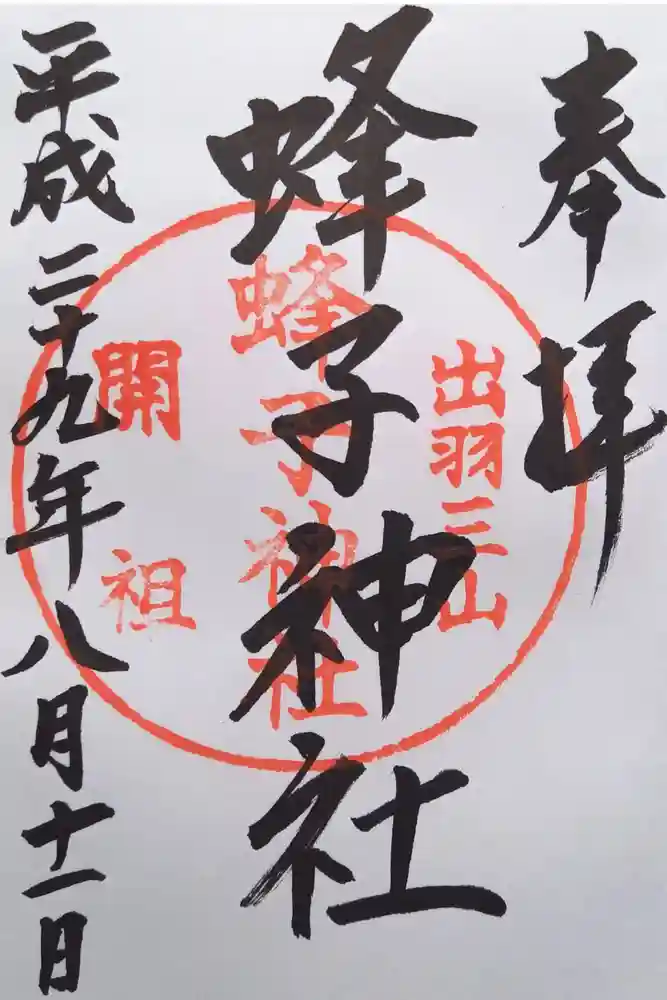 奉拝
出羽三山
蜂子神社
蜂子神社
開祖
平成二十九年八月十一日